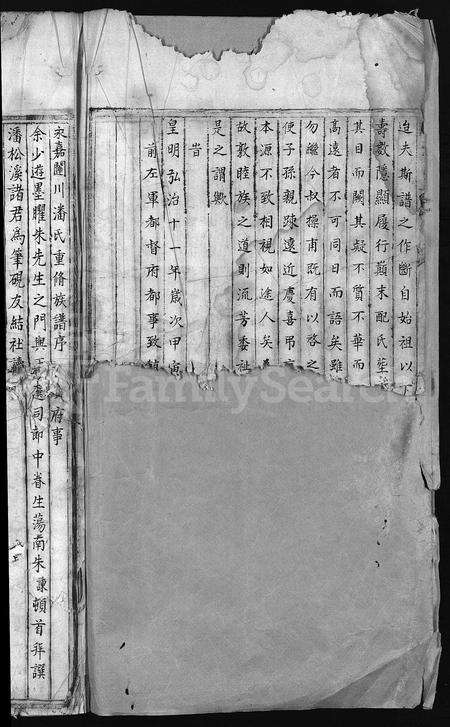 迨夫斯譜之作斷自始祖以
壽數隱顯履行顛末配氏塟
其目而闕其疑不質不華而
高遠者不可同日而語矣雖
勿繼今叔操甫既有以啓之
便子孫親踈遠近慶喜弔
本源不致相視如途人矣
故敦睦族之道則流芳委祉
是之謂歟
旹
皇明弘治十一年歲次甲寅
前左軍都督府都事致
永嘉閣川潘氏重脩族譜序
府事
余少遊墨瞿朱先生之門與
司郎中眷生蕩南朱諫頓首拜譔
潘松溪諸君爲筆硯友結社
FamilySearch